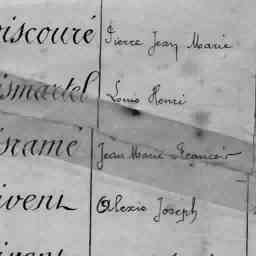 iscouré Pierre Jean Marie
ismartel Louis Henri
sramé Jean Marie François
ivent Alexis Joseph